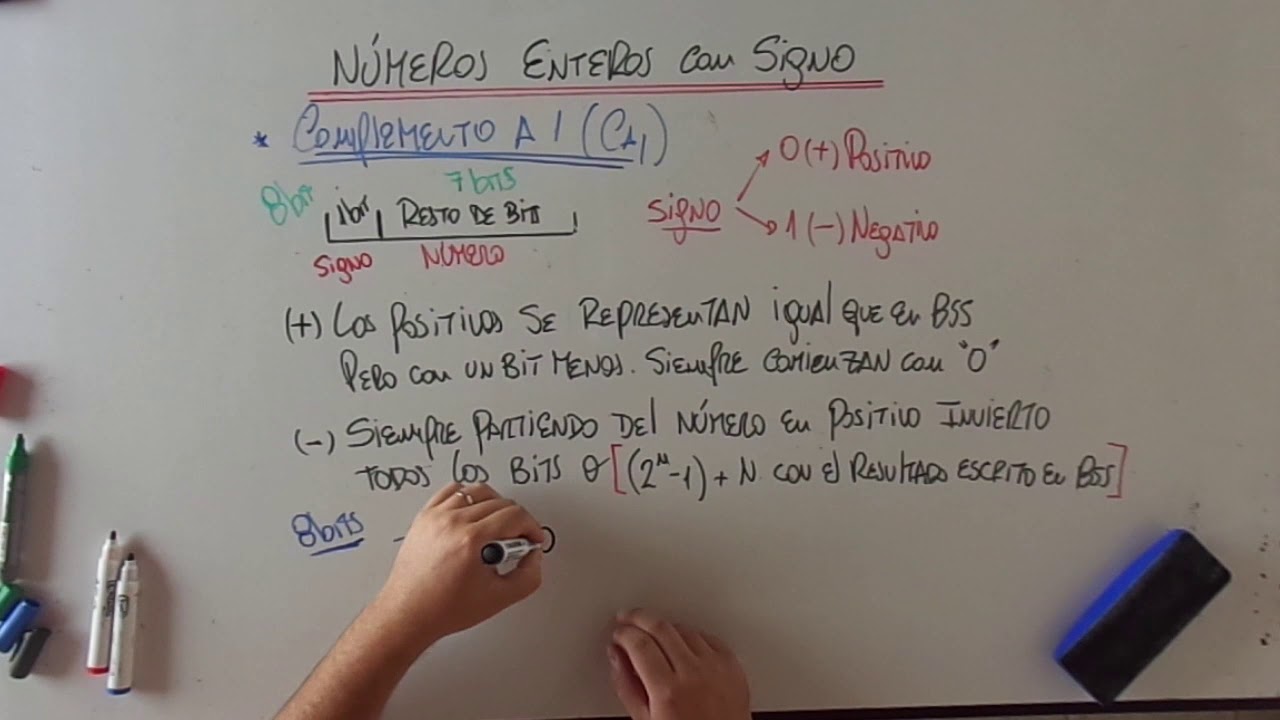 NÚMEROS ENTEROS con Signo
* COMPLEMENTO A 1 (CA1)
8bit 1bit RESTO DE BIT 7 bits
Signo NÚMERO
Signo
0 (+) Positivo
1 (-) Negativo
(+) Los positivos SE REPRESENTAN igual que en BSS
Pero con un BIT MENOS. Siempre comienzan con "0"
(-) Siempre partiendo del número en positivo INVIERTO
TODOS los BITS O [(2ᴺ-1) + N con el RESULTADO ESCRITO en BSS]
8bits - 0